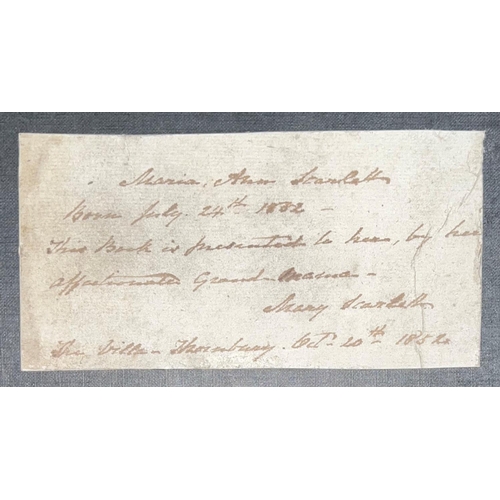 Maria, Ann Scarlett
Born July. 24th 1852 -
This Book is presented to her, by her
affectionate Grand-Mama -
Mary Scarlett
The Villa - Thornbury. Oct. 20th 1852